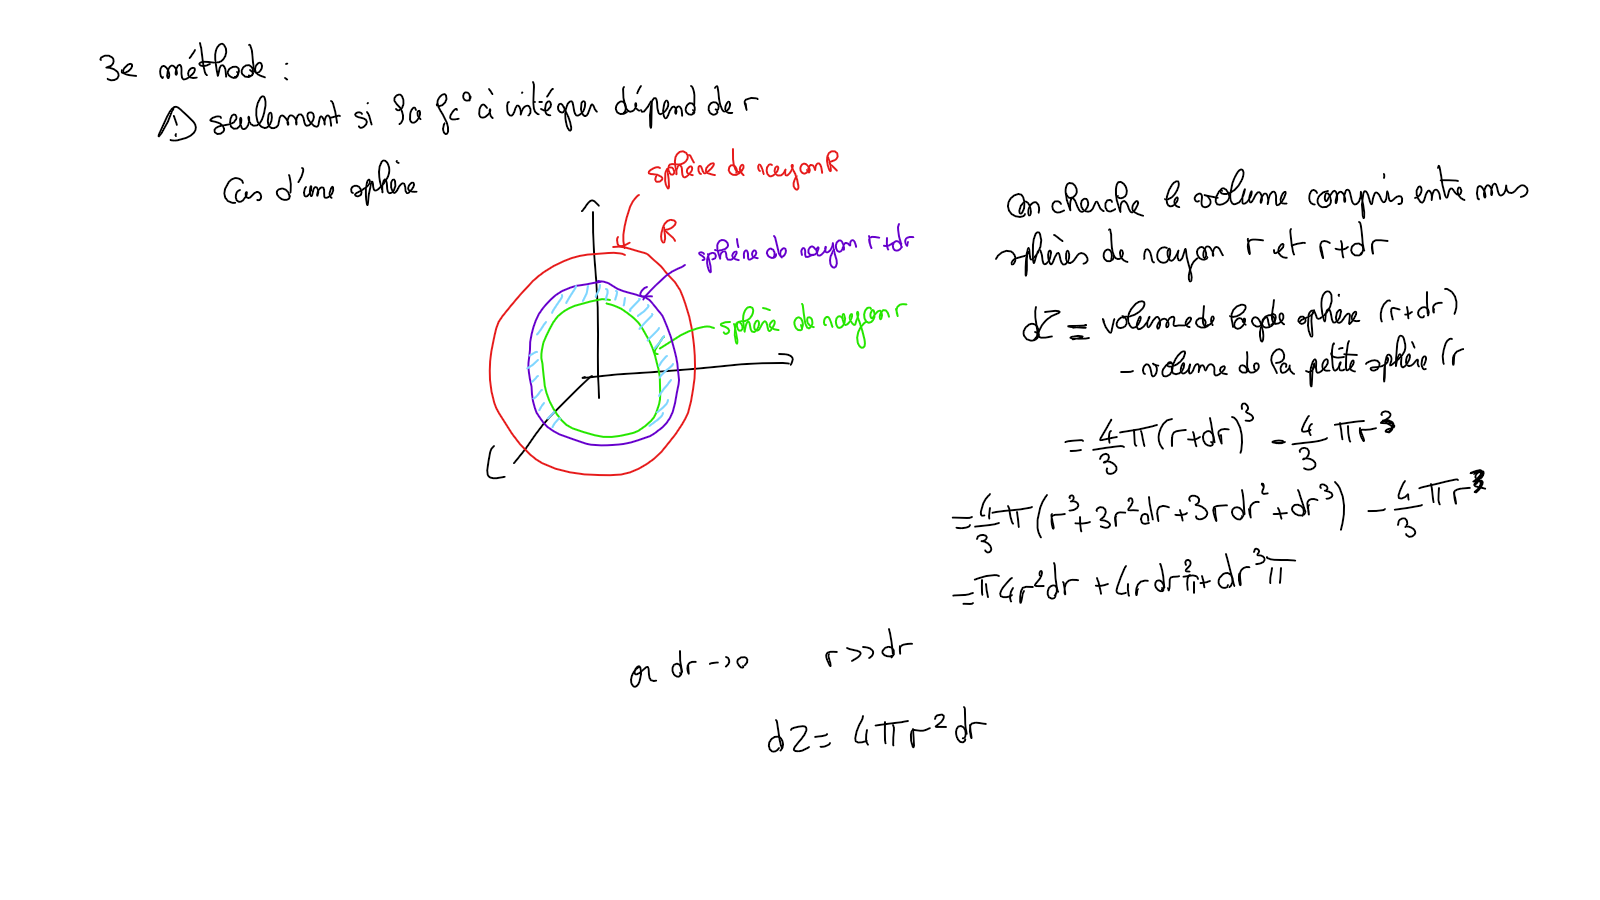 3e méthode :
⚠ seulement si la fc° à intégrer dépend de r
Cas d'une sphère
sphère de rayon R
R
sphère de rayon r+dr
sphère de rayon r
on cherche le volume compris entre mes
sphères de rayon r et r+dr
dZ = volume de la gde sphère (r+dr)
- volume de la petite sphère (r
= 4/3 π(r+dr)³ - 4/3 πr³
= 4/3 π(r³+3r²dr+3rdr²+dr³) - 4/3 πr³
= π4r²dr + 4rdr²π + dr³π
or dr→0 r>>dr
dZ = 4πr²dr